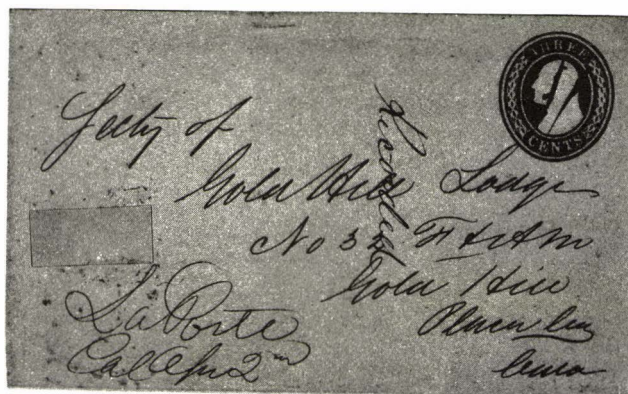 THREE
CENTS
Secty of
Gold Hill Lodge
No 32 F & AM
Gold Hill
Placer Co
La Porte
Cal Apr 2nd